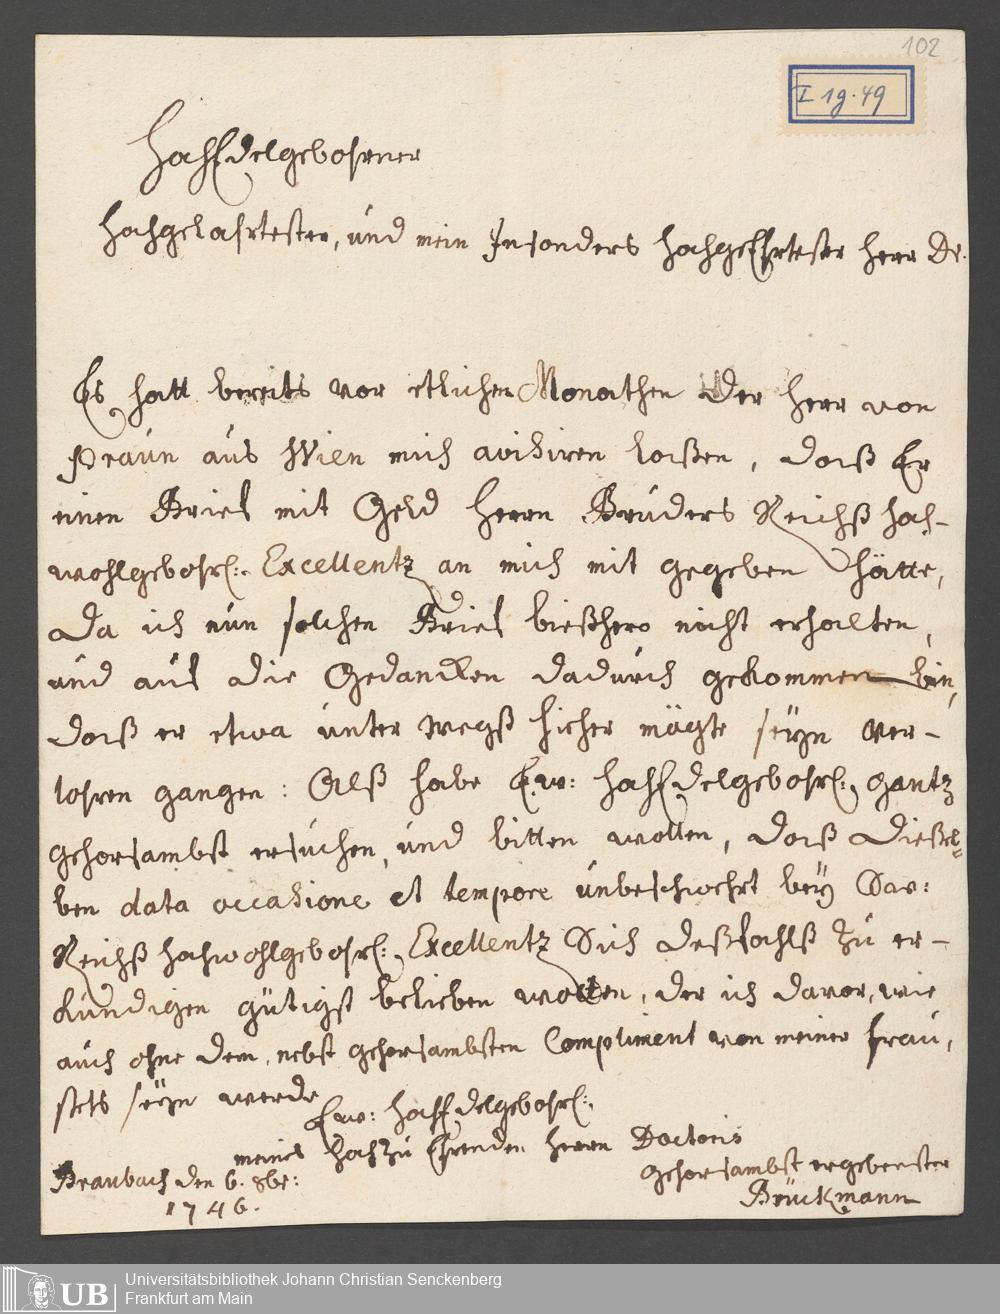 102
I 19.49
HochEdelgebohrner
Hochgelahrtester, und mein Insonders HochgeEhrtester Herr Dr.
Es hatt bereits vor etlichen Monathen der Herr von
Praun aus Wien mich avisiren laßen, daß Er
einen Brief mit Geld Herrn Bruders Reichß Hoch-
wohlgebohrl: Excellentz an mich mit gegeben hätte,
Da ich nun solchen Brief bießhero nicht erhalten,
und auf die Gedancken dadurch gekommen bin,
daß er etwa unter wegß hieher mögte seyn ver-
lohren gangen: Alß habe Ew: HochEdelgebohrl: gantz
gehorsambst ersuchen, und bitten wollen, daß Dießel-
ben data occasione et tempore unbeschwehrt bey Dero:
Reichß Hochwohlgebohrl: Excellentz Sich deßfahlß zu er-
kundigen gütigst belieben wollen, der ich davor, wie
auch ohne dem, nebst gehorsambsten Compliment von meiner Frau,
stets seyn werde
Ew: HochEdelgebohrl:
meines Hochzu Ehrenden Herrn Doctoris
Braubach den 6. 8br:
1746.
gehorsambst ergebenster
Brückmann
UB
Universitätsbibliothek Johann Christian Senckenberg
Frankfurt am Main